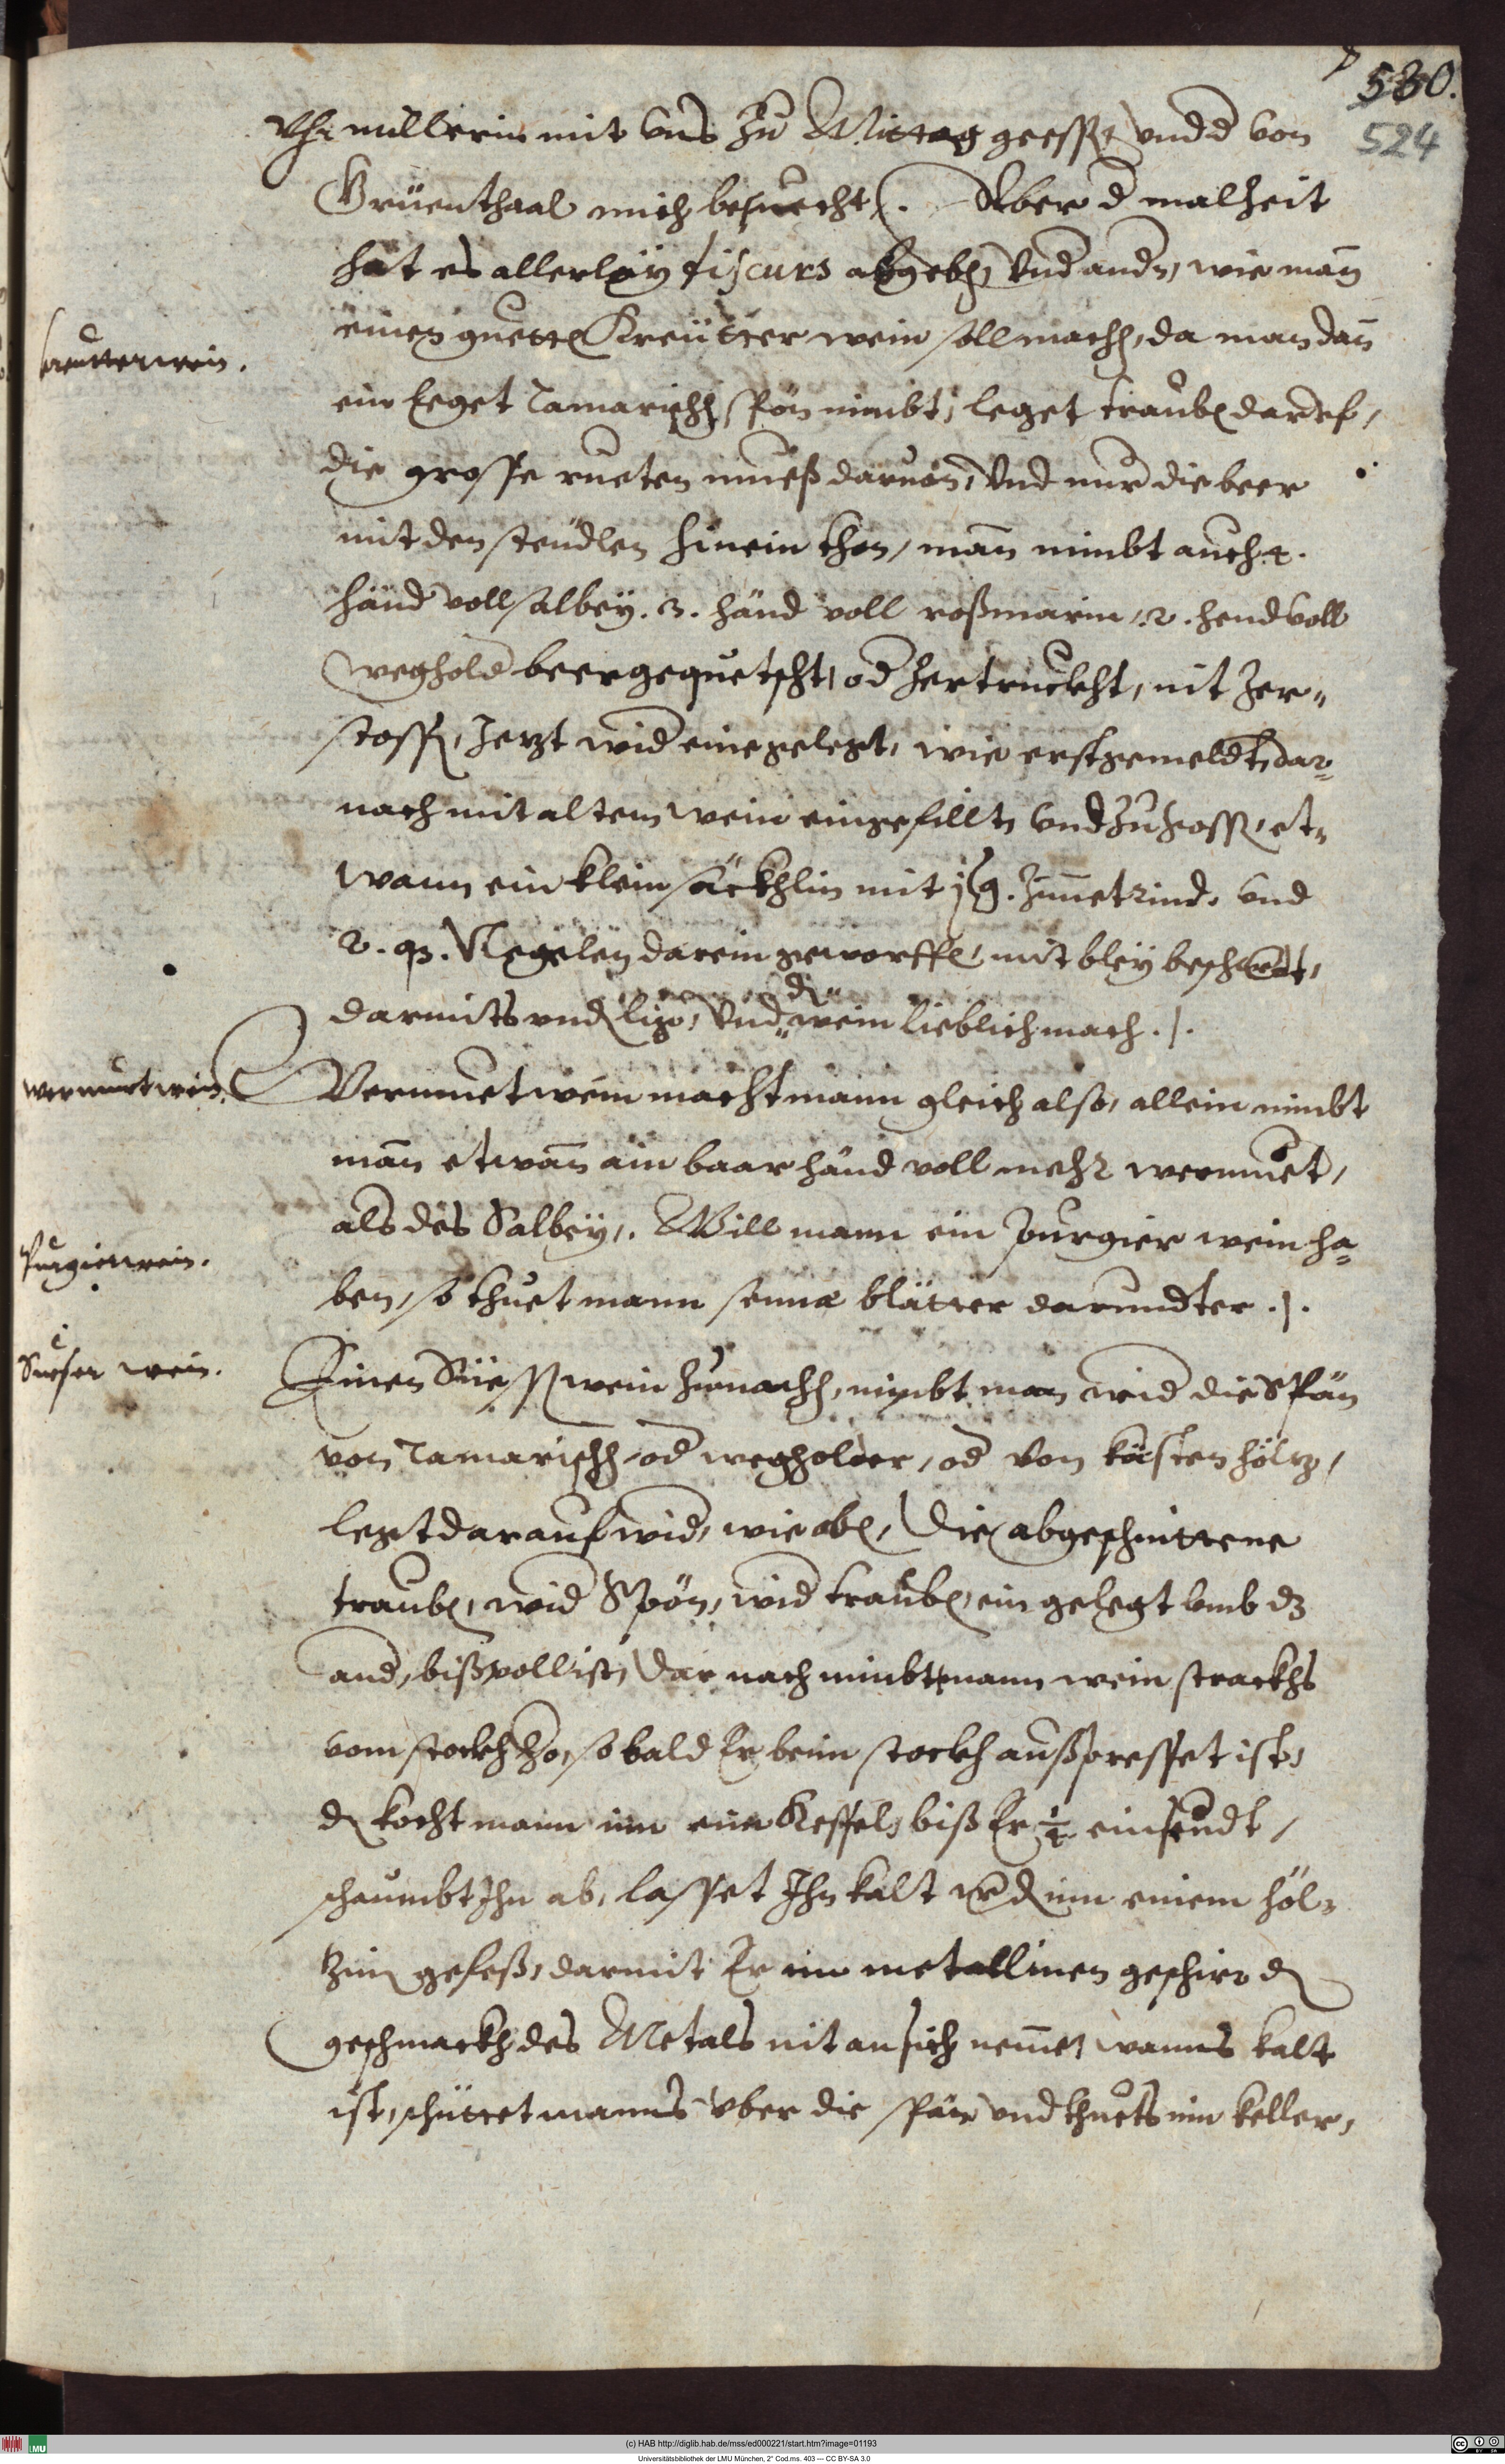 580.
524
Vhrmillerin mit vns zu Mittag geessen vnd d von
Grüenthaal mich besuecht. Aber d malzeit
hat es allerlaÿ discurs abgeben, vnd andn, wie man
einen gueten Kreütter wein soll machen, da man dan
kreutterwein.
ein leget Tamarischen spön nimbt, leget trauben daruf,
die grosse rueten mueß daruon, vnd nur die beer
mit den steüdlen hinein thon, man nimbt auch 4.
händ voll salbeÿ. 3. händ voll roßmarin, 2. hendvoll
weghold beer gequetscht, od zertruckht, nit zer-
stossen, Jetzt wid eingelegt, wie erstgemeldt, dar-
nach mit altem wein eingefillt, vnd zugossen, et-
wann ein klein säckhlin mit zimetrind, vnd
2. q. Negelen darein geworffen, mit bleÿ beschwert,
darmits vnden lige, vnd den wein lieblich mach.
wermuet wein.
Vermuet wein macht mann gleich also, allein nimbt
man etwan ain baar händ voll mehr wermuet,
als des Salbeÿ. Will mann ein purgier wein ha-
Purgierwein.
ben, so thuet mann senna blätter darundter.
Süeser wein.
Einen Süessen wein zumachen, nimbt man wid die Spän
von Tamarischen od wegholder, od von kästen höltz,
legt darauf wid, wie oben, die abgeschnittene
trauben, wid Spön, wid trauben, ein gelegt vmb dz
and, biß voll ist, dar nach nimbt mann wein strackhs
vom stockh so bald Er beim stockh außpresset ist,
den kocht mann inn eim Kessel, biß Er ¼ einseudt,
schaumbt Ihn ab, lasset Ihn kalt werden inn einem höl-
zin gefeß, darmit Er im metallinen geschirr den
geschmackh des Metals nit an sich neme, wanns kalt
ist, schüttet manns vber die spän vnd thuets inn keller,
(c) HAB http://diglib.hab.de/mss/ed000221/start.htm?image=01193
Universitätsbibliothek der LMU München, 2° Cod.ms. 403 — CC BY-SA 3.0